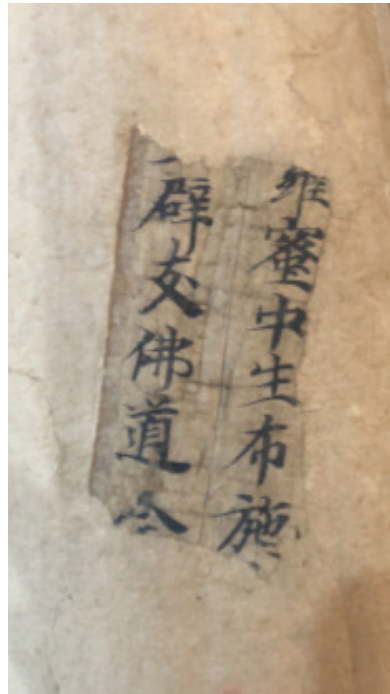 羅蜜中生布施
辟支佛道